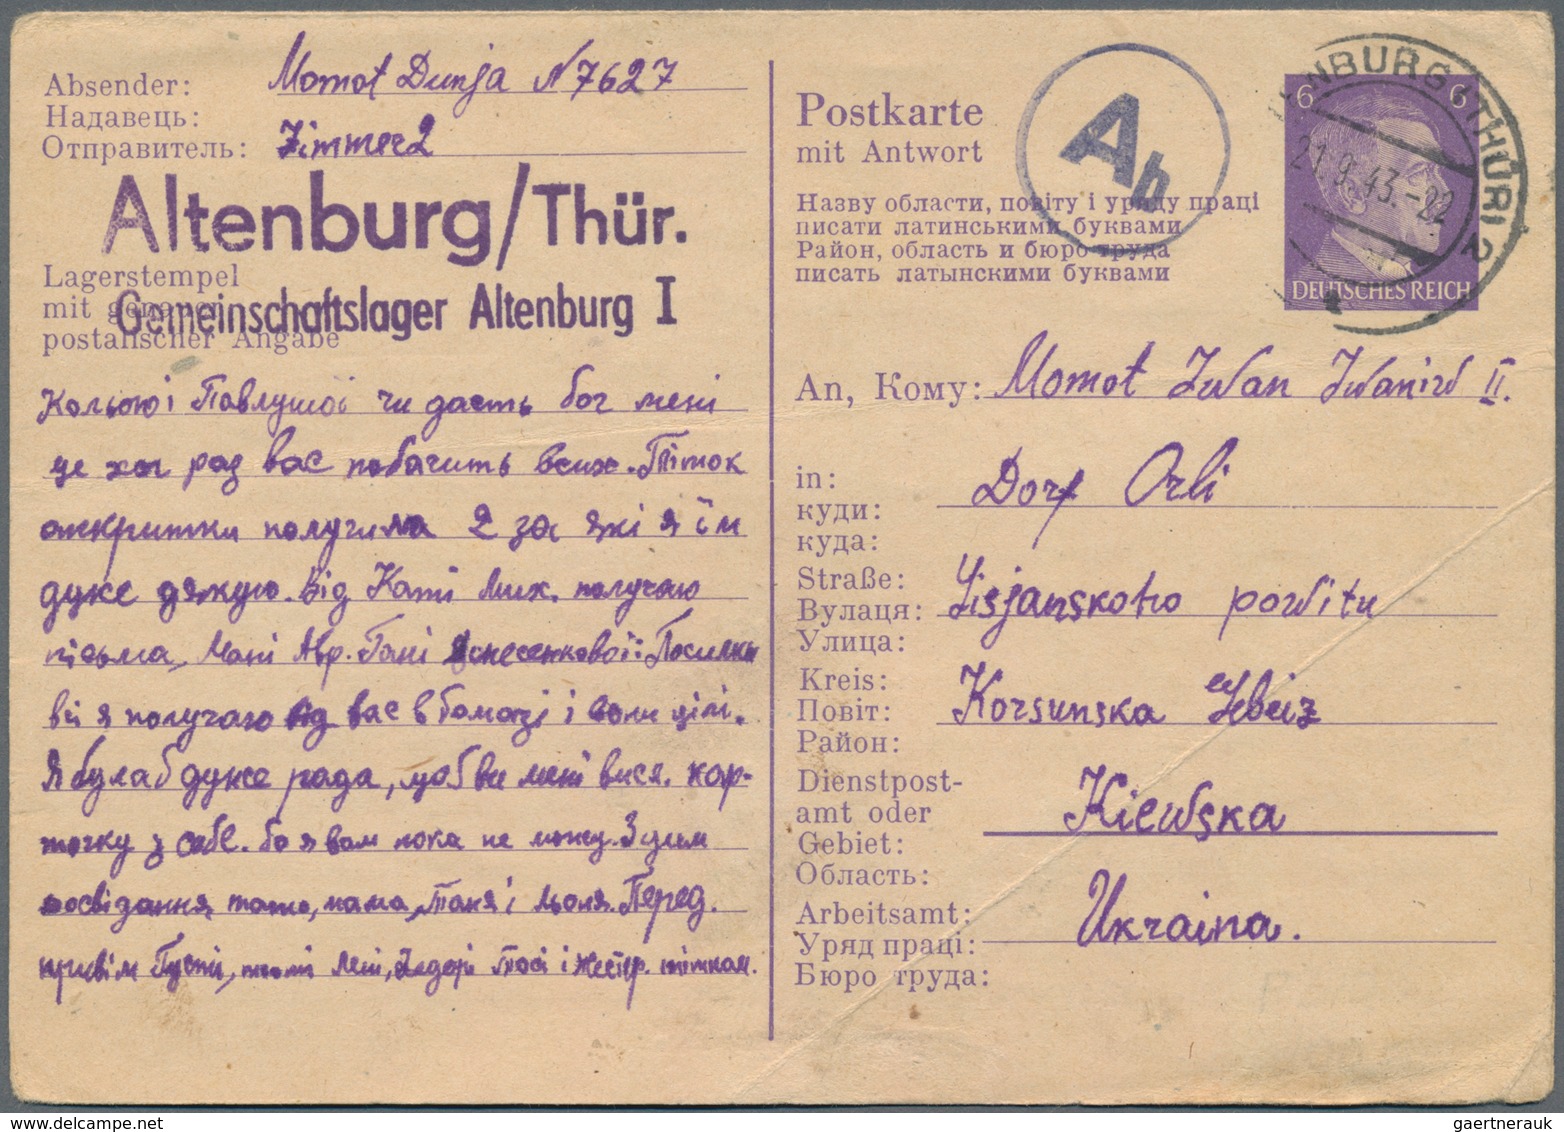 Absender: Momot Dunja N 7627
Надавець:
Отправитель: Zimmer 2
Altenburg/Thür.
Lagerstempel
mit genauer
postalischer Angabe
Gemeinschaftslager Altenburg I
Кольою і Павлушої чи дасть бог мені
ще хоч раз вас побачить всих. Тіток
откритки получила 2 за які я їм
дуже дякую. Від Каті Мих. получаю
пісьма, Мані Авр. Гані Посилки
всі я получаю від вас в і вони цілі.
Я була б дуже рада, щоб ви мені висл. кар-
точку з себе. бо я вам пока не можу. З цим
досвідання, тато, мама, Таня і Льоля. Перед.
привіт тьоті Лені, Тосі і тіткам.
Postkarte
mit Antwort
Назву области, повіту і уряду праці
писати латинськими буквами
Район, область и бюро труда
писать латынскими буквами
Ab
6 6
DEUTSCHES REICH
ENBURG (THÜR) 2
21.9.43.-22
An, Кому: Momot Iwan Iwaniw II.
in: Dorf Orli
куди:
куда:
Straße: Lisjanskoho powitu
Вулаця:
Улица:
Kreis: Korsunska Gebiz
Повіт:
Район:
Dienstpost-
amt oder Kiewska
Gebiet:
Область:
Arbeitsamt: Ukraina.
Уряд праці:
Бюро труда:
gaertnerauk